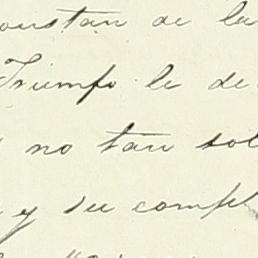 constan de la
Triumfo le de
no tan sol
y su compl